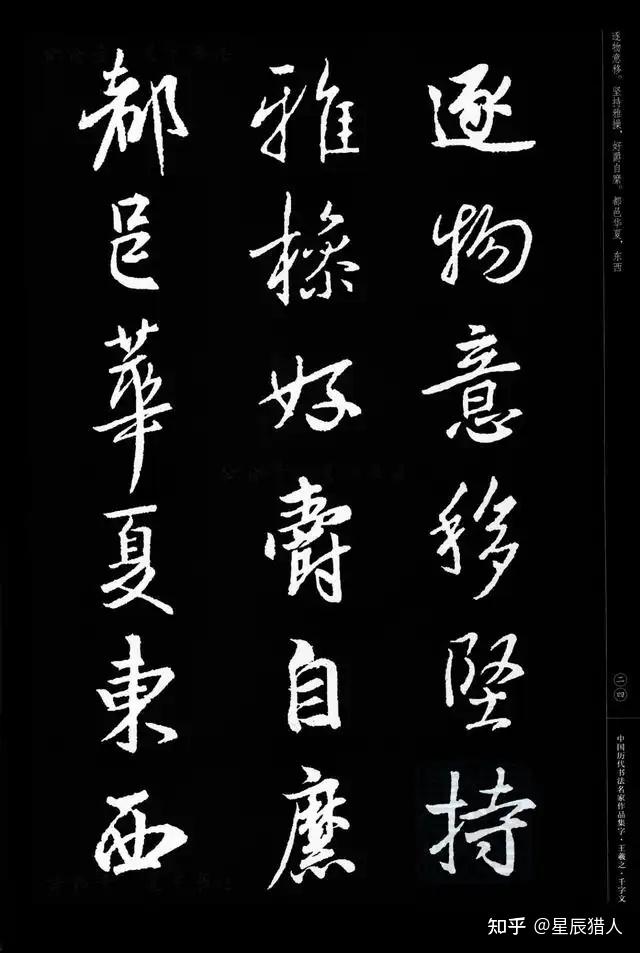 逐物意移。坚持雅操，好爵自縻。都邑华夏，东西
逐物意移堅持
雅操好爵自縻
都邑華夏東西
二四
中国历代书法名家作品集字·王羲之·千字文
知乎 @星辰猎人